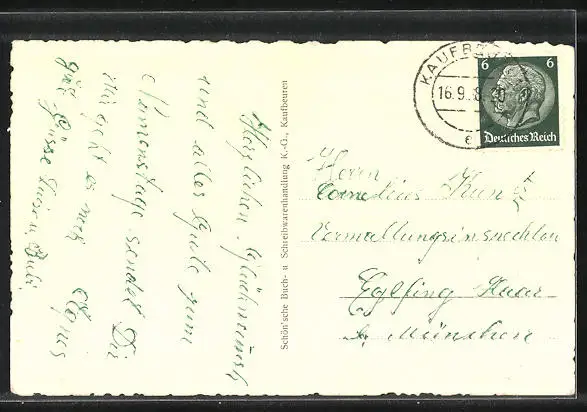 Herzlichen Glückwunsch
und alles Gute zum
Namenstage sendet Dir
Agnes
Mir geht es noch
gut. Grüsse Luise u. Babi.
Schön'sche Buch- u. Schreibwarenhandlung K.-G., Kaufbeuren
KAUFBEUREN
16.9.38.
e
6 6
Deutsches Reich
Herrn
Cornelius Kunst
Verwaltungsinspektor
Eglfing Haar
b. München